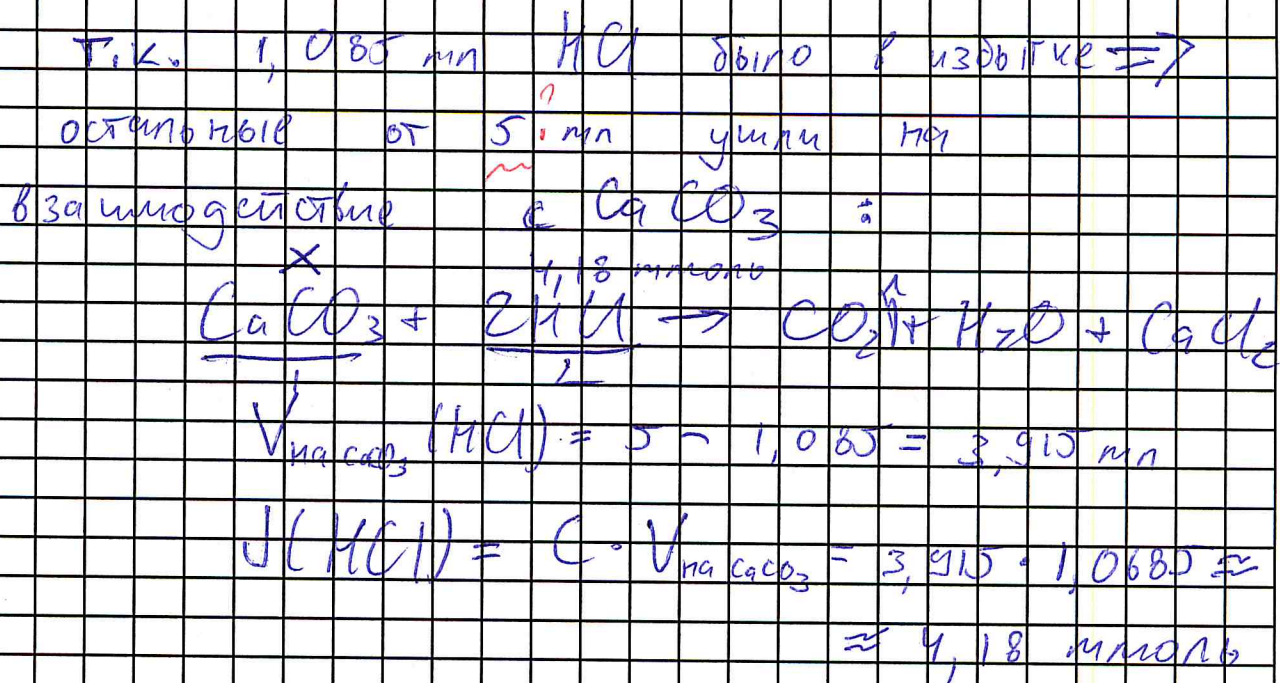 т.к. 1,085 мл HCl было в избытке =>
?
остальные от 5 мл ушли на
взаимодействие с CaCO₃ :
x 4,18 ммоль
CaCO₃ + 2HCl → CO₂↑ + H₂O + CaCl₂
1 2
V на CaCO₃ (HCl) = 5 - 1,085 = 3,915 мл
ν(HCl) = C · V на CaCO₃ = 3,915 · 1,0685 ≈
≈ 4,18 ммоль